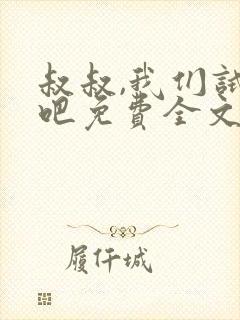 叔叔,我们试
吧免费全文
履仟城